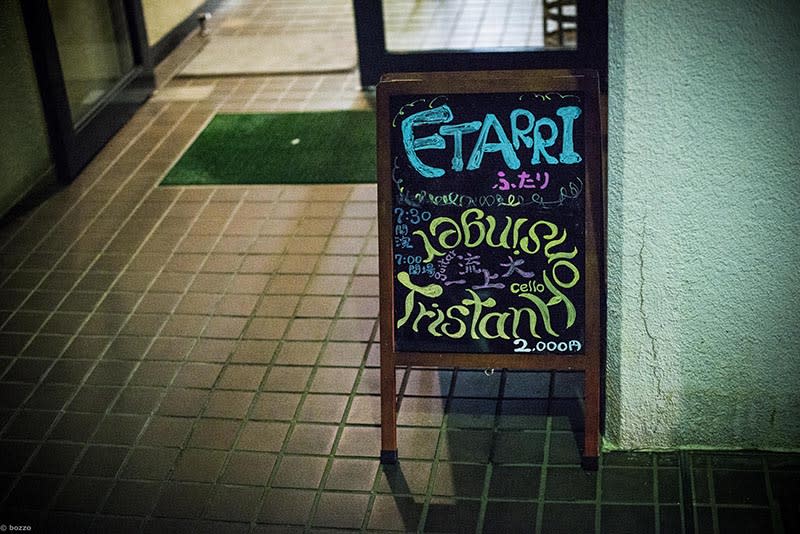 ETARRI
ふたり
7:30
開演
7:00
開場
Tristan Honsinger
cello
大上流一
guitar
2,000円
© bozzo